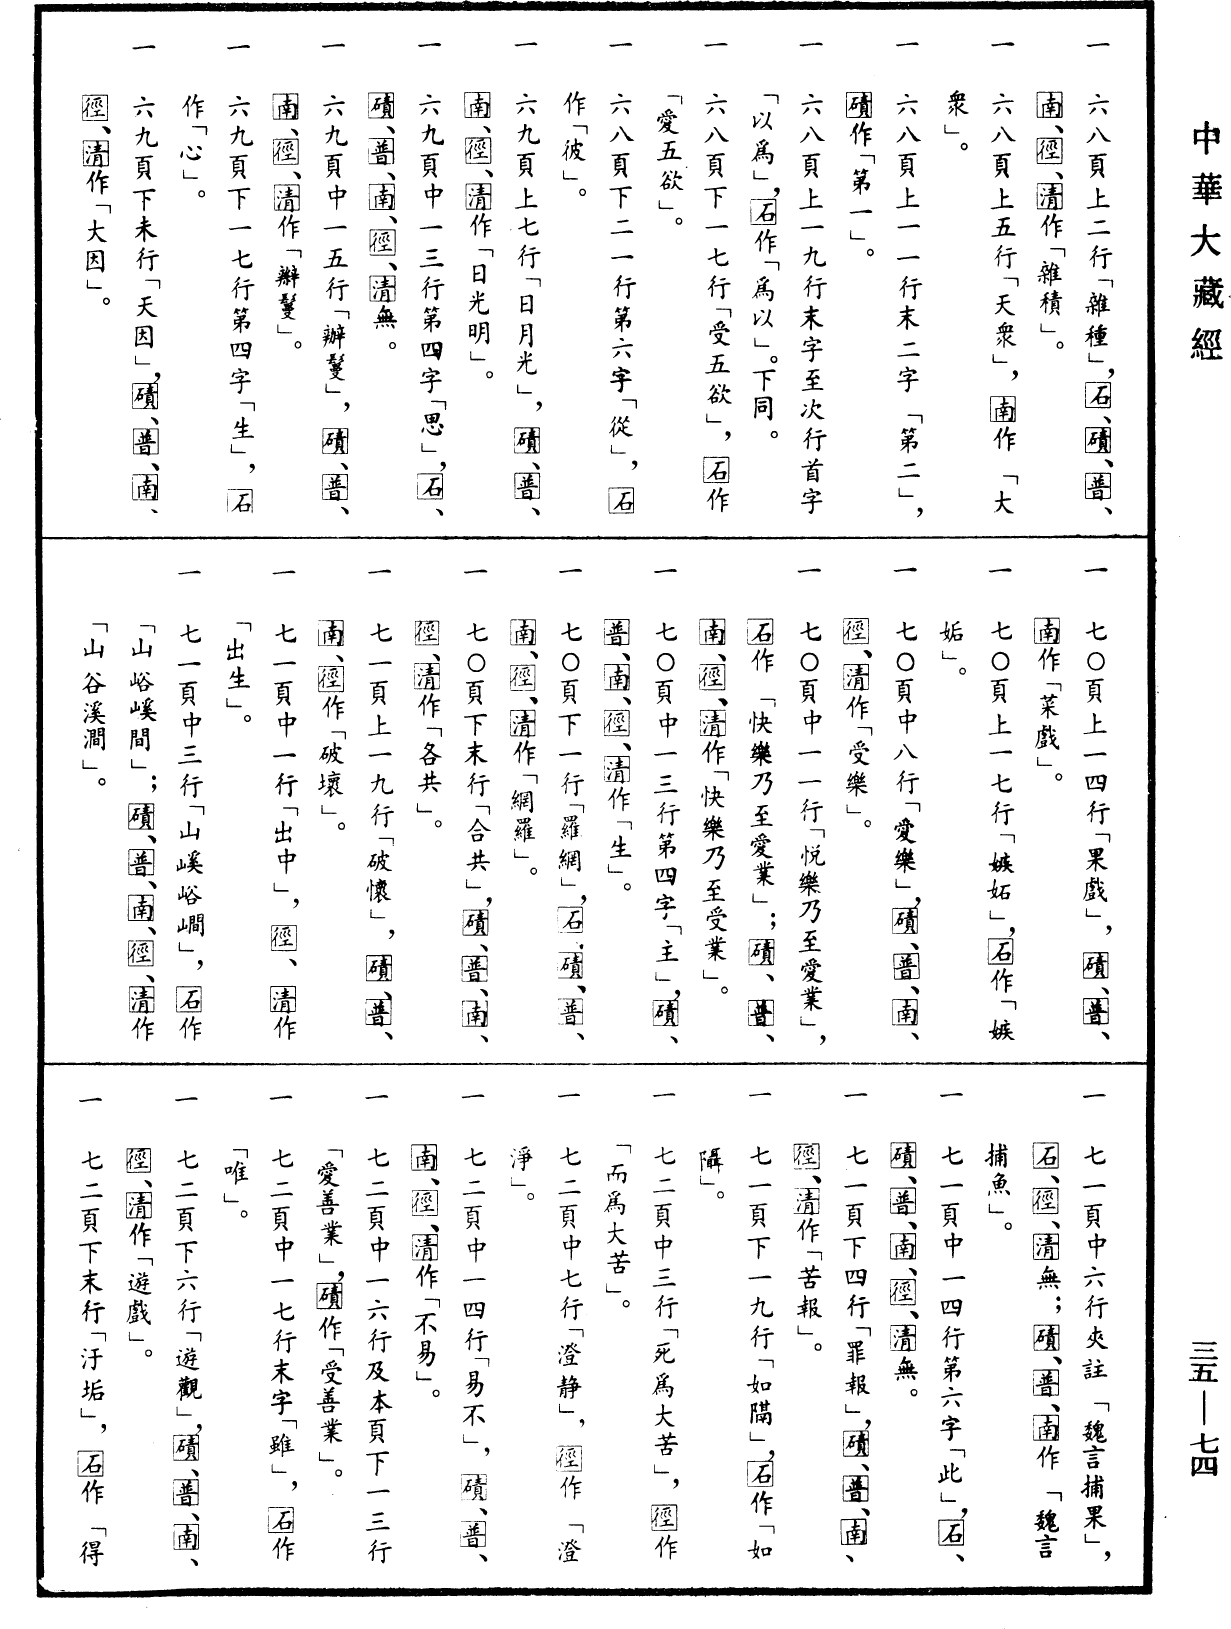 中華大藏經
一　六八頁上二行「雜種」，石、磧、普、
南、徑、清作「雜積」。
一　六八頁上五行「天衆」，南作「大
衆」。
一　六八頁上一一行末二字「第二」，
磧作「第一」。
一　六八頁上一九行末字至次行首字
「以爲」，石作「爲以」。下同。
一　六八頁下一七行「受五欲」，石作
「愛五欲」。
一　六八頁下二一行第六字「從」，石
作「彼」。
一　六九頁上七行「日月光」，磧、普、
南、徑、清作「日光明」。
一　六九頁中一三行第四字「思」，石、
磧、普、南、徑、清無。
一　六九頁中一五行「辮鬘」，磧、普、
南、徑、清作「辮鬘」。
一　六九頁下一七行第四字「生」，石
作「心」。
一　六九頁下末行「天因」，磧、普、南、
徑、清作「大因」。
一　七〇頁上一四行「果戲」，磧、普、
南作「菜戲」。
一　七〇頁上一七行「嫉妬」，石作「嫉
妬」。
一　七〇頁中八行「愛樂」，磧、普、南、
徑、清作「受樂」。
一　七〇頁中一一行「悦樂乃至愛業」，
石作「快樂乃至愛業」；磧、普、
南、徑、清作「快樂乃至受業」。
一　七〇頁中一三行第四字「主」，磧、
普、南、徑、清作「生」。
一　七〇頁下一行「羅網」，石、磧、普、
南、徑、清作「網羅」。
一　七〇頁下末行「合共」，磧、普、南、
徑、清作「各共」。
一　七一頁上一九行「破懷」，磧、普、
南、徑作「破壞」。
一　七一頁中一行「出中」，徑、清作
「出生」。
一　七一頁中三行「山嵠峪㵎」，石作
「山峪嵠間」；磧、普、南、徑、清作
「山谷溪澗」。
一　七一頁中六行夾註「魏言捕果」，
石、徑、清無；磧、普、南作「魏言
捕魚」。
一　七一頁中一四行第六字「此」，石、
磧、普、南、徑、清無。
一　七一頁下四行「罪報」，磧、普、南、
徑、清作「苦報」。
一　七一頁下一九行「如隔」，石作「如
隔」。
一　七二頁中三行「死爲大苦」，徑作
「而爲大苦」。
一　七二頁中七行「澄静」，徑作「澄
淨」。
一　七二頁中一四行「易不」，磧、普、
南、徑、清作「不易」。
一　七二頁中一六行及本頁下一三行
「愛善業」，磧作「受善業」。
一　七二頁中一七行末字「雖」，石作
「唯」。
一　七二頁下六行「遊觀」，磧、普、南、
徑、清作「遊戲」。
一　七二頁下末行「汙垢」，石作「得
三五—七四